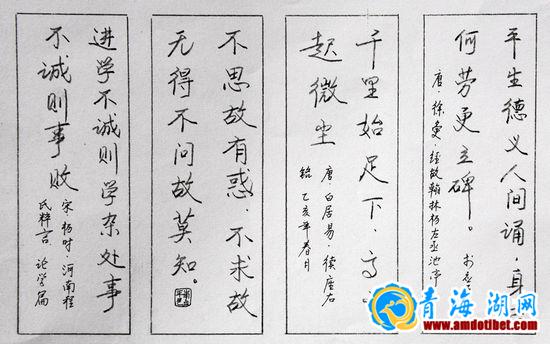 平生德义人间诵,身
何劳更立碑。
唐·徐夤·经故翰林杨左丞池亭
千里始足下,高
起微尘
唐·白居易·续座右
铭 乙亥年春月
不思故有惑,不求故
无得不问故莫知。
进学不诚则学杂处事
不诚则事败
宋·杨时·河南程
氏粹言 论学篇
青海湖网
www.amdotibet.com